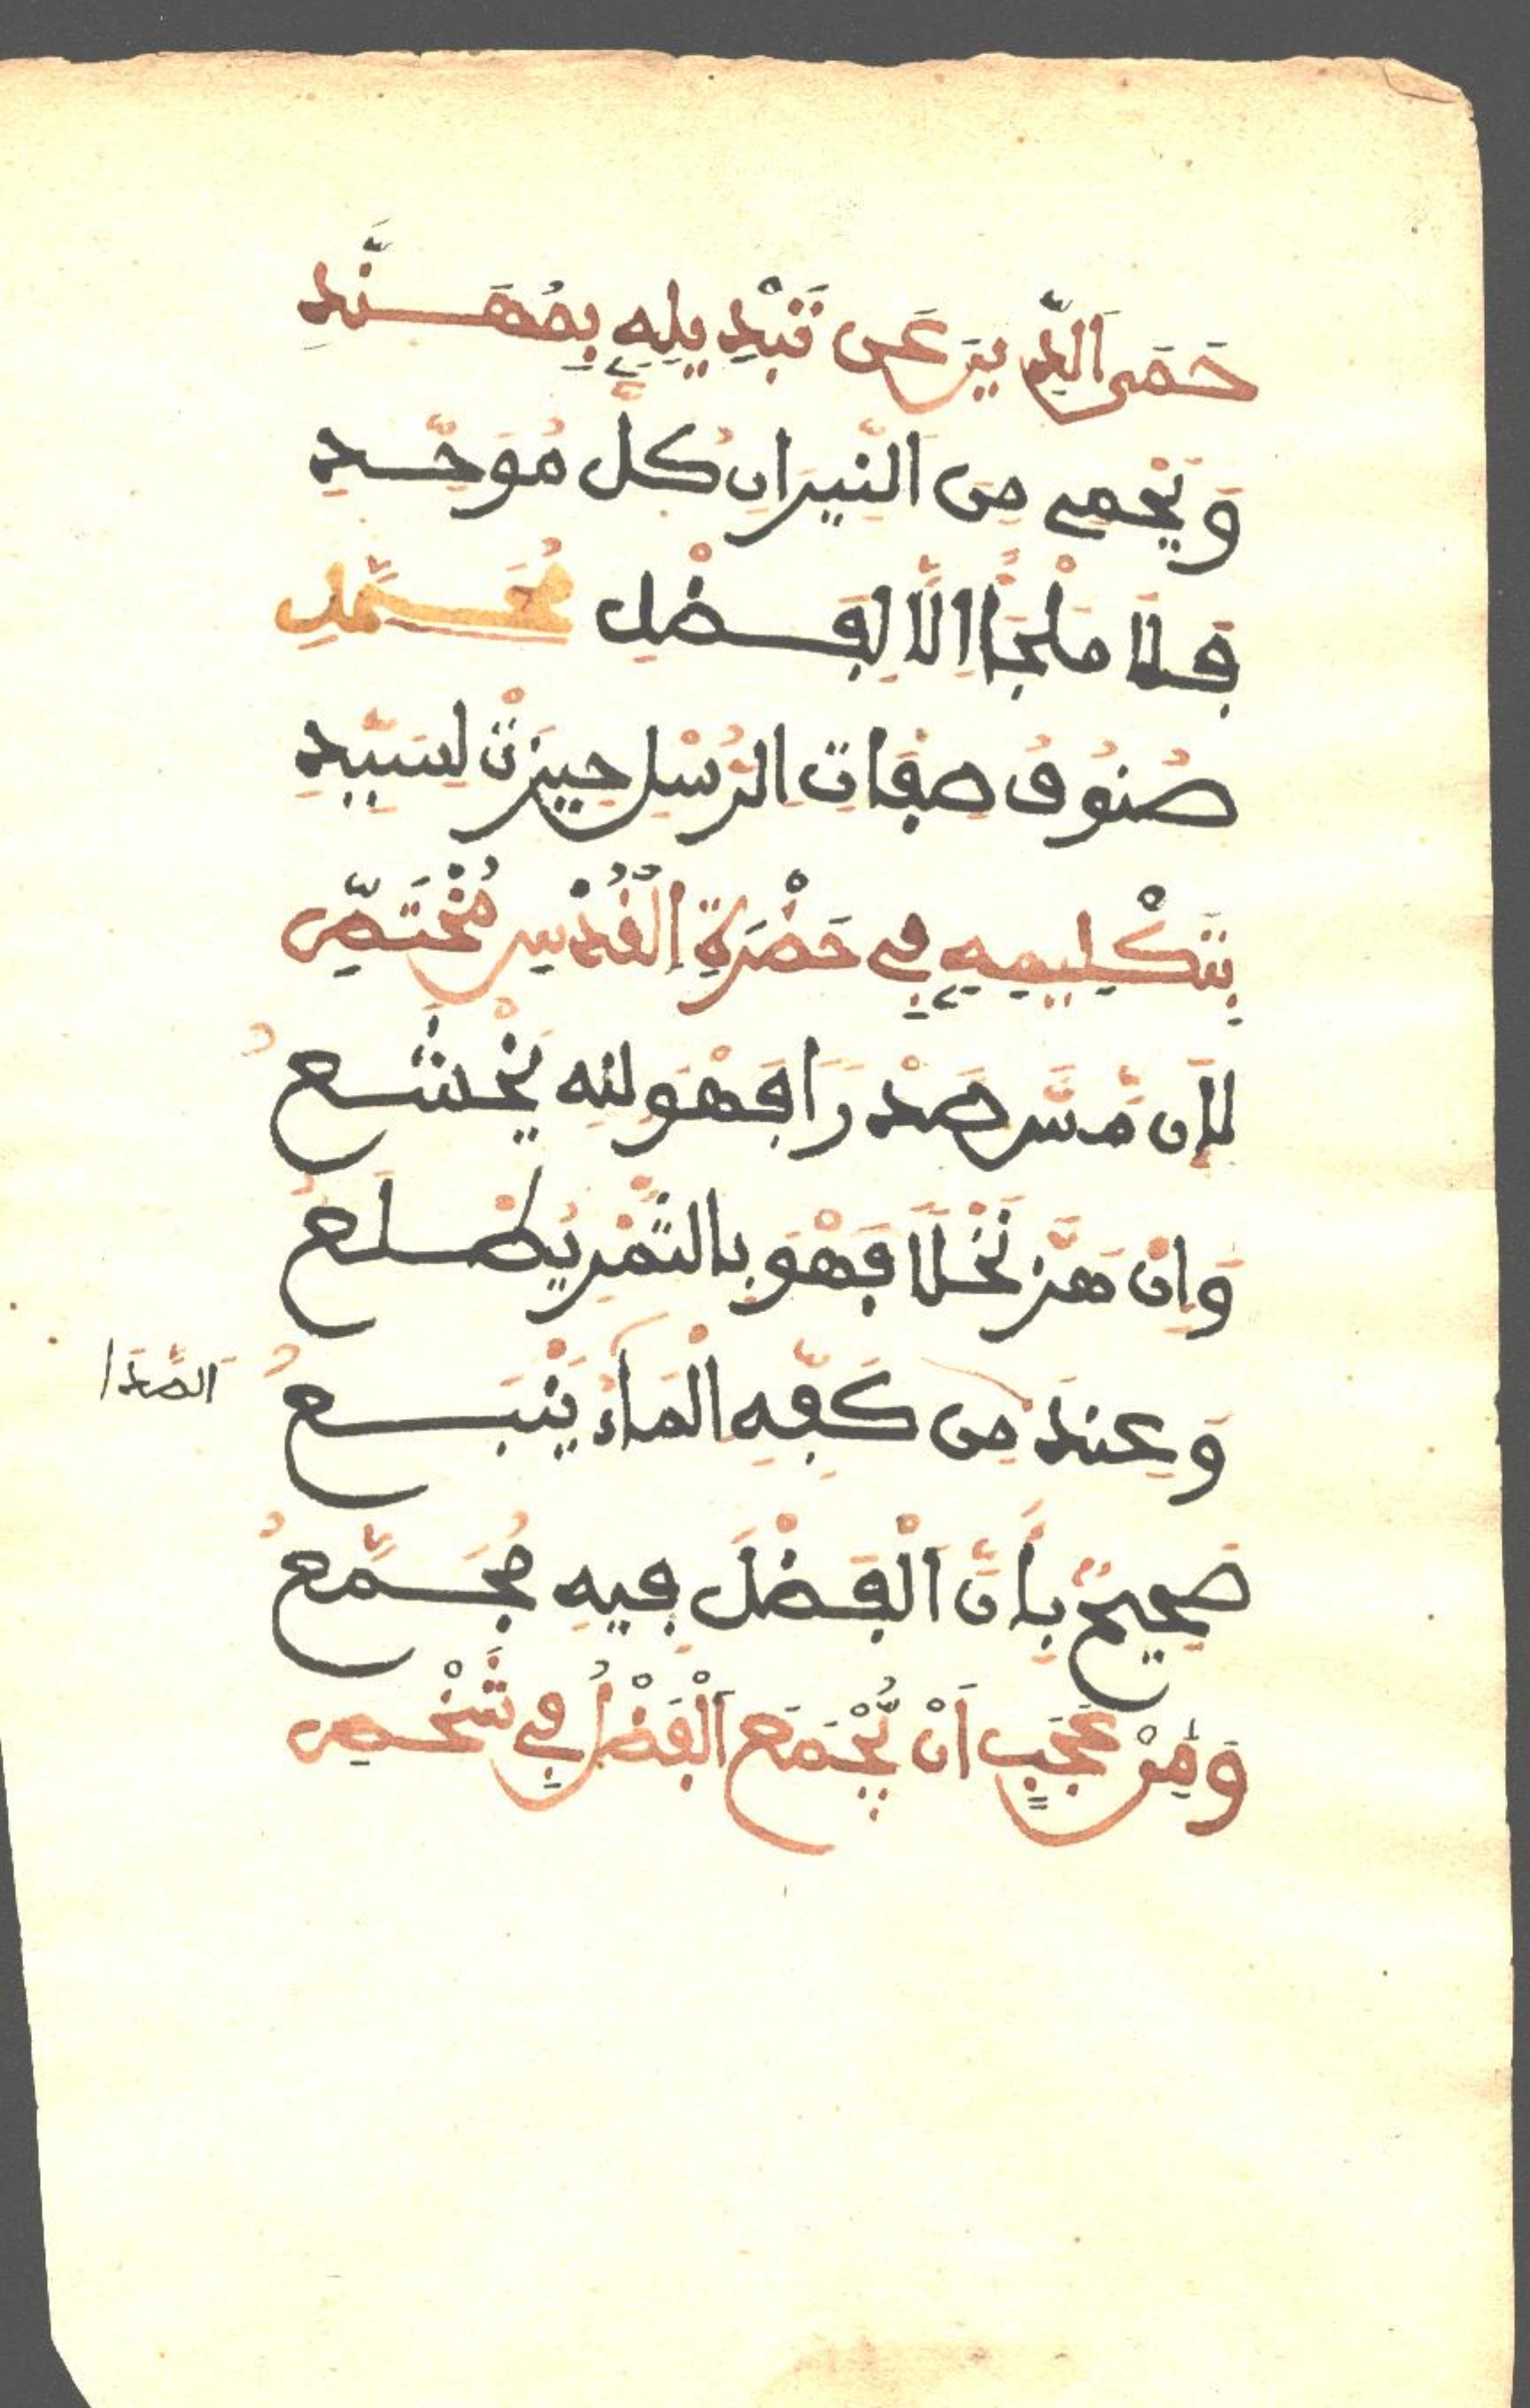 حَمَى اَلدِّينَ عَن تَبْدِيلِهِ بِمُهَنَّدِ
وَيَحْمِي مِنَ اَلنِّيرَانِ كُلَّ مُوَحِّدِ
فَلَا مَلْجَأً اِلَّا لِفَضْلِ مُحَمَّدِ
صُنُوفُ صِفَاتِ الرُّسْلِ حِيزَتْ لِسَيِّدِ
بِتَكْلِيمِهِ فِي حَضْرَةِ اِلْقُدْسِ مُخْتَصِّ
لَإِن مَّسَّ صَدْرًا فَهْوَ لِلهِ يَخْشَعُ
وَإِنْ هَزَّ نَخْلًا فَهْوَ بِالتَّمْرِ يُطْلَعُ
وَعِندَ مِن كَفِّهِ اِلْمَاءُ يَنْبَعُ
الصَّدَا
صَحِيحٌ بِأَنَّ اَلْفَضْلَ فِيهِ مُجَمَّعُ
وَمِنْ عَجَبٍ اَنْ يُّجْمَعَ اَلْفَضْلُ فِي شَخْصِ